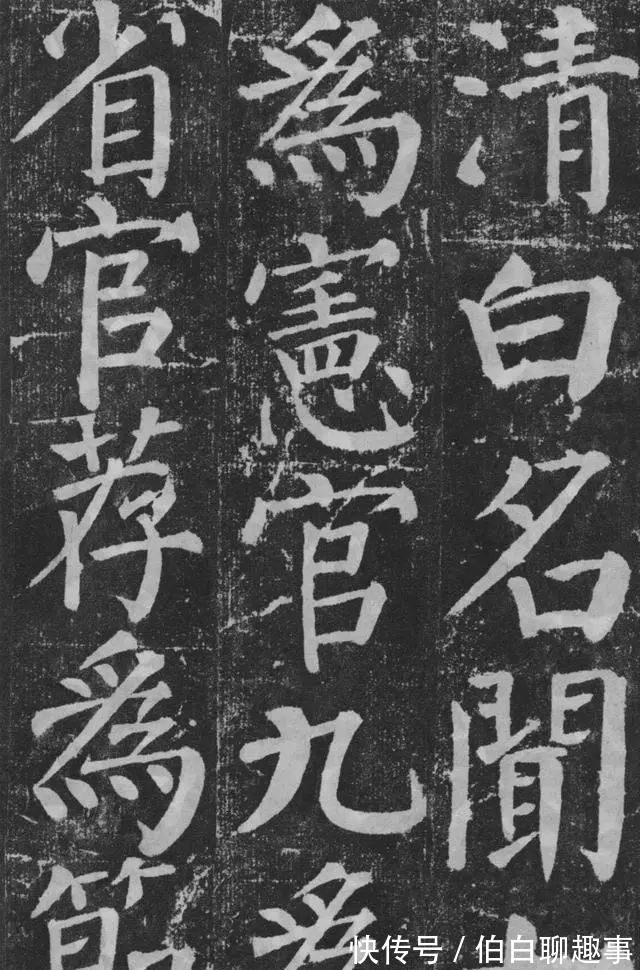 清白名聞
為憲官九為
省官荐為節
快传号 / 伯白聊趣事